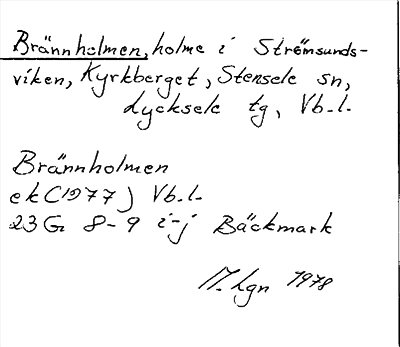 Brännholmen, holme i Strömsunds-
viken, Kyrkberget, Stensele sn,
Lycksele tg, Vb.l.
Brännholmen
ek (1977) Vb.l.
23G 8-9 i-j Bäckmark
M. Lgn 1978